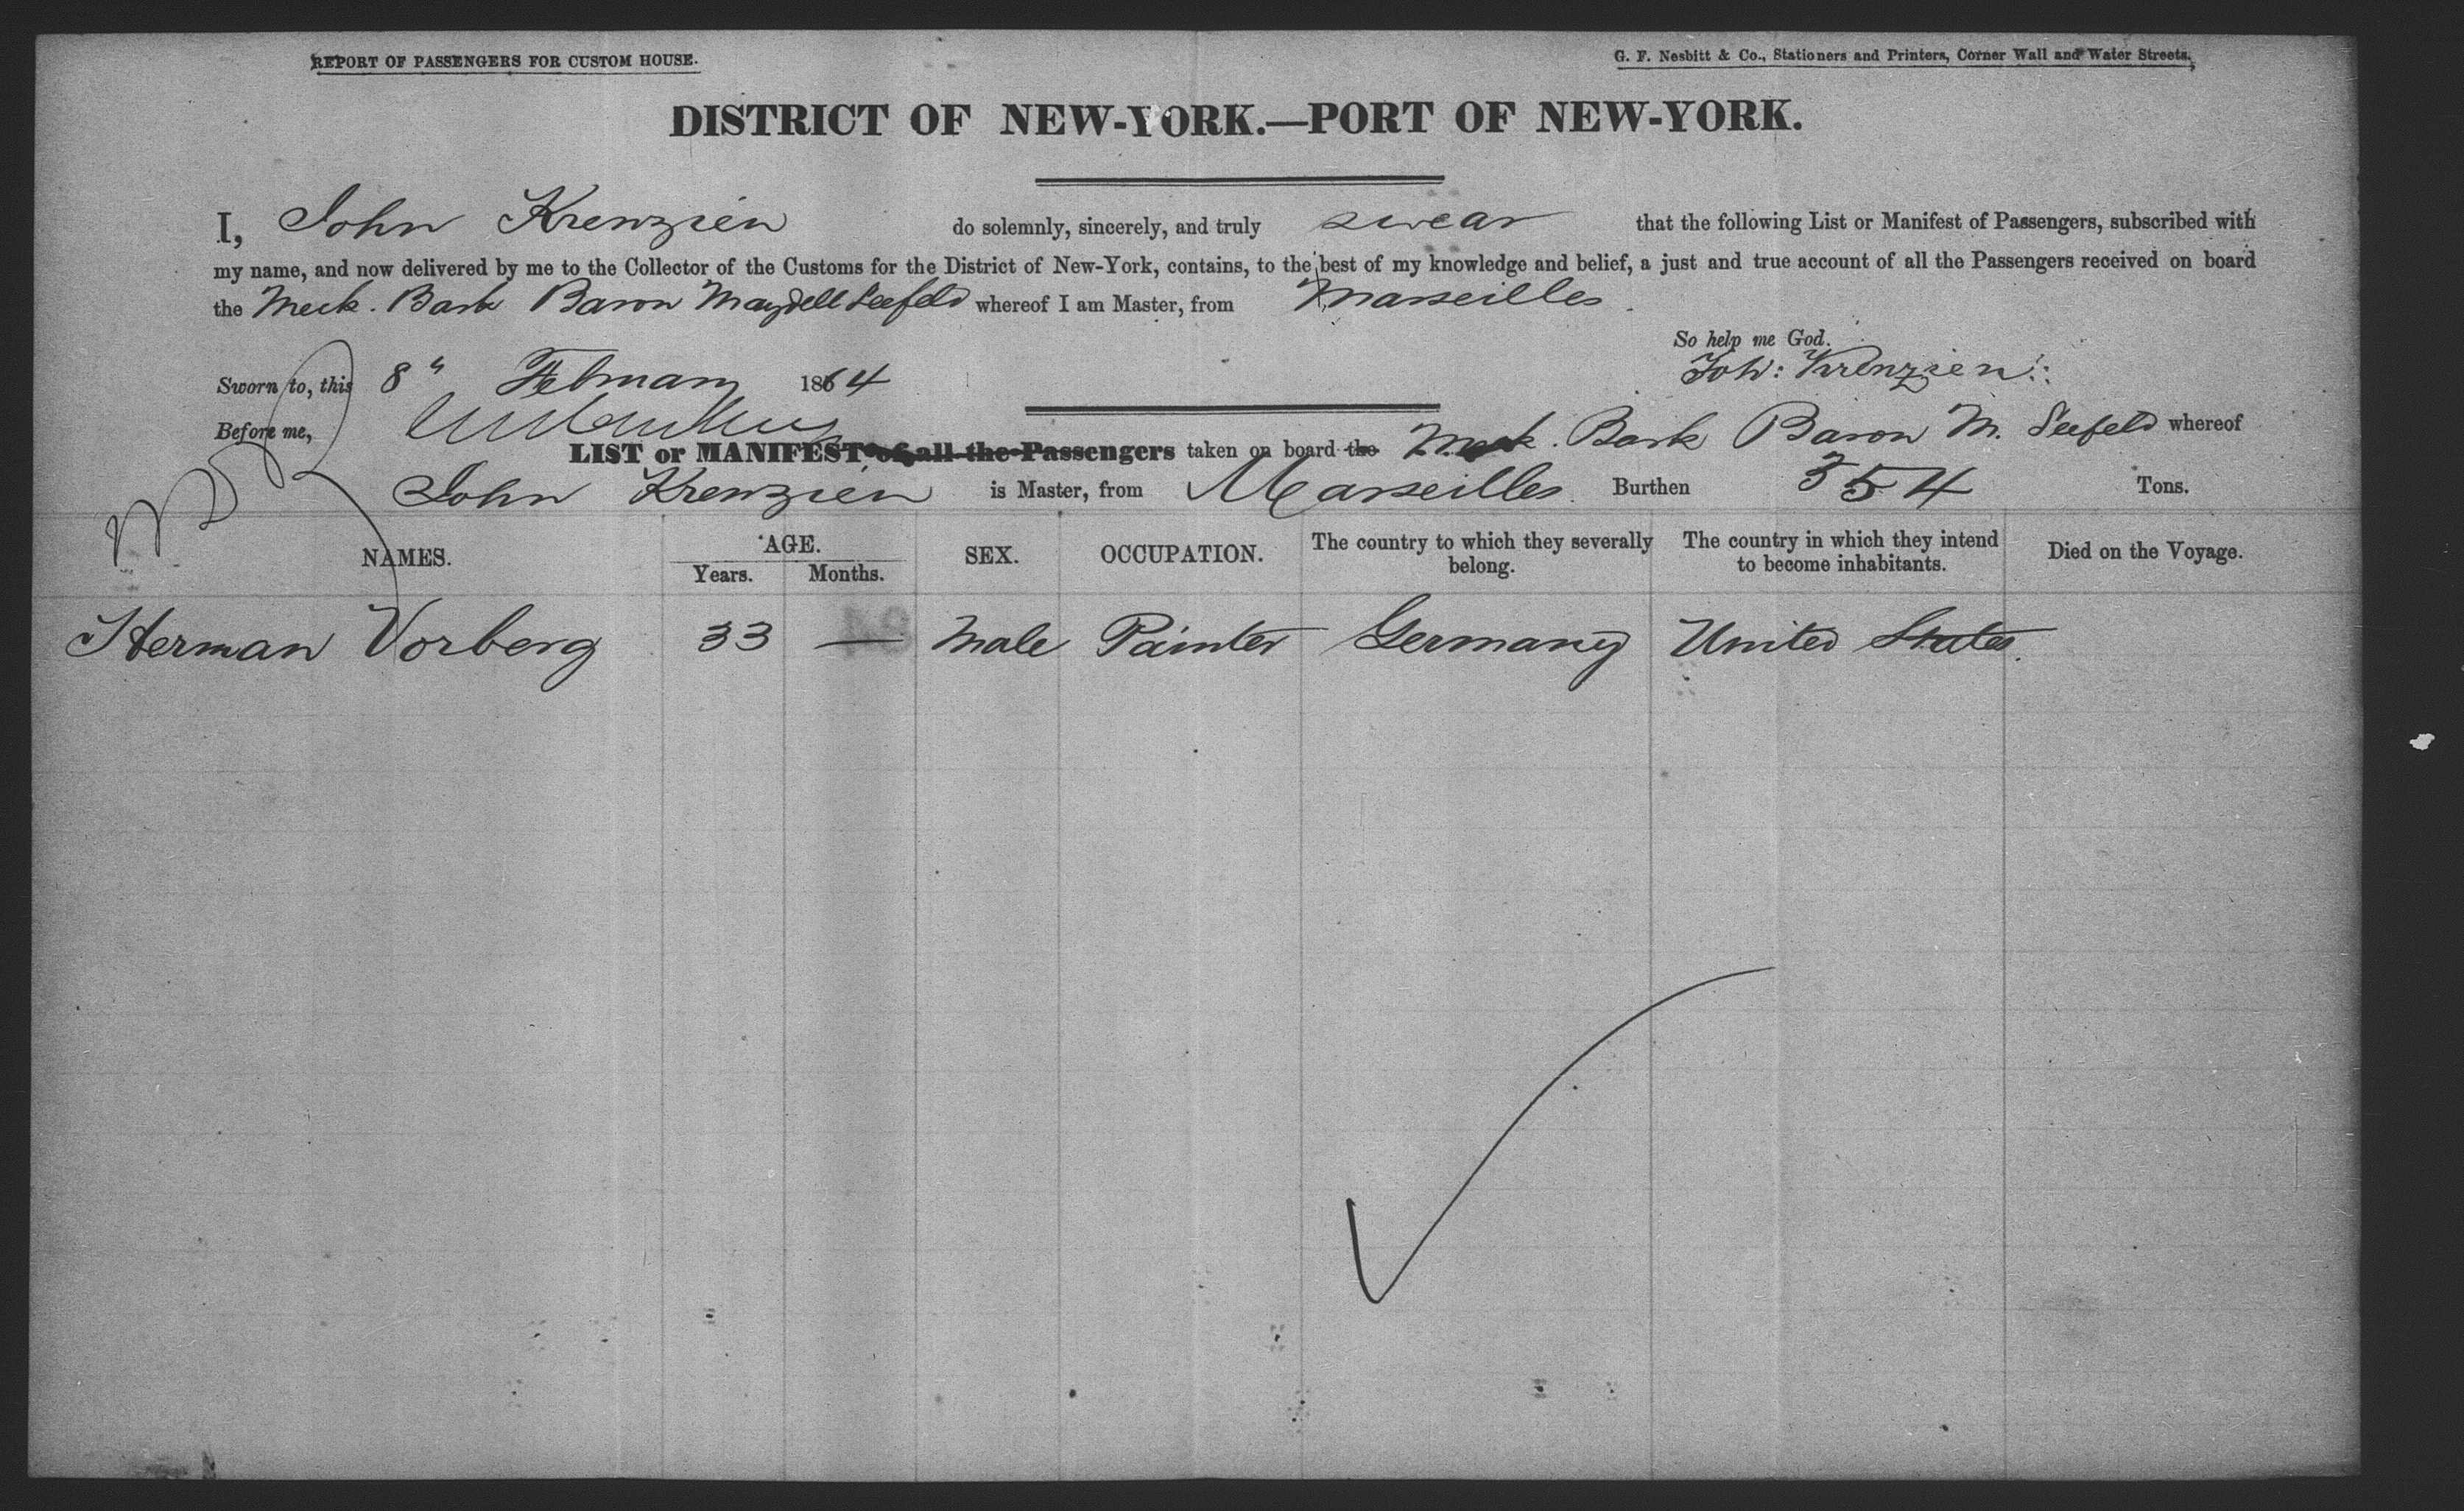 REPORT OF PASSENGERS FOR CUSTOM HOUSE.
G. F. Nesbitt & Co., Stationers and Printers, Corner Wall and Water Streets.
DISTRICT OF NEW-YORK.—PORT OF NEW-YORK.
I, John Krenzien do solemnly, sincerely, and truly swear that the following List or Manifest of Passengers, subscribed with
my name, and now delivered by me to the Collector of the Customs for the District of New-York, contains, to the best of my knowledge and belief, a just and true account of all the Passengers received on board
the Meck. Bark Baron Maydell Seefeld whereof I am Master, from Marseilles.
So help me God.
Sworn to, this 8" February 1864
Joh: Krenzien
Before me,
LIST or MANIFEST of all the Passengers taken on board the Meck. Bark Baron M. Seefeld whereof
John Krenzien is Master, from Marseilles. Burthen 354 Tons.
NAMES. AGE. Years. Months. SEX. OCCUPATION. The country to which they severally belong. The country in which they intend to become inhabitants. Died on the Voyage.
Herman Vorberg 33 — Male Painter Germany United States.